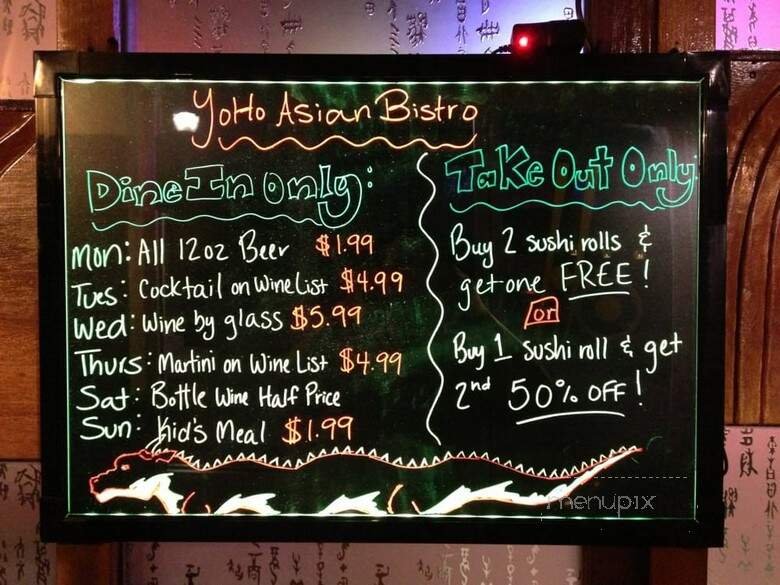 YoHo Asian Bistro
Dine In Only:
Mon: All 12oz Beer $1.99
Tues: Cocktail on Wine List $4.99
Wed: Wine by glass $5.99
Thurs: Martini on Wine List $4.99
Sat: Bottle Wine Half Price
Sun: Kid's Meal $1.99
Take Out Only
Buy 2 sushi rolls &
get one FREE!
or
Buy 1 sushi roll & get
2nd 50% OFF!
menupix